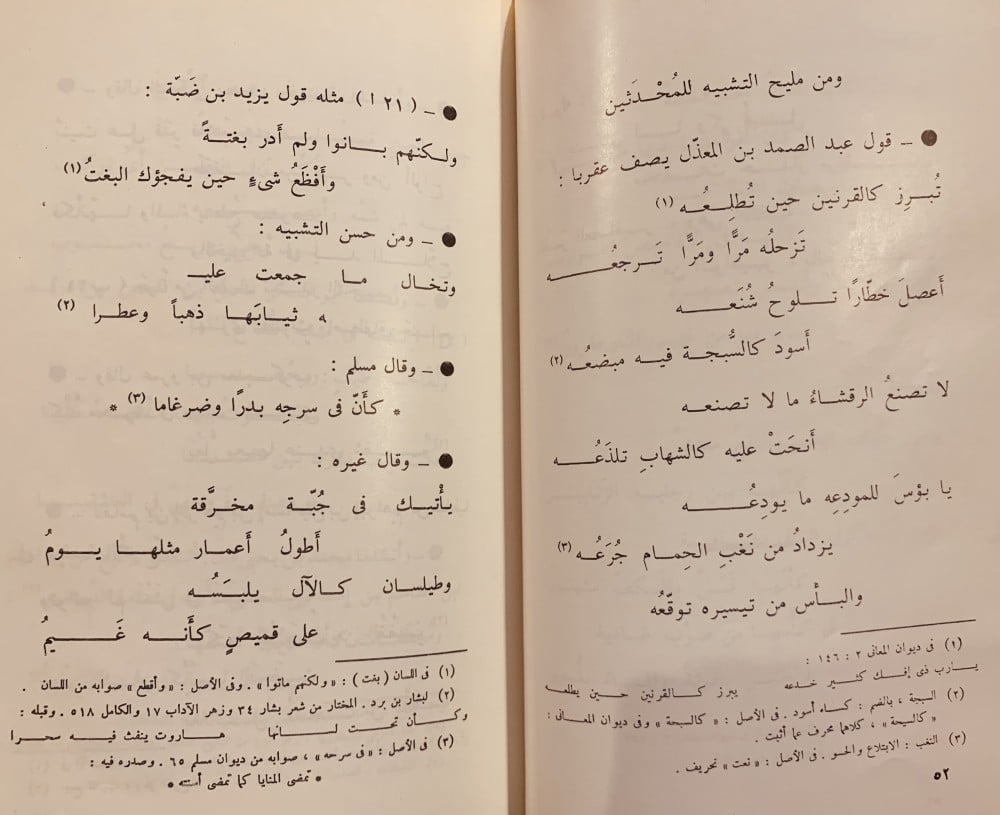 ومن مليح التشبيه للمُحْدَثين
● ــ قول عبد الصمد بن المعذّل يصف عقربا :
تُبرِز كالقرنين حين تُطلِعُه (١)
تَزحلُه مَرًّا ومَرًّا تَرجعُه
أَعصلَ خطّارًا تلوحُ شُنَعه
أَسودَ كالسُّبجة فيه مبضعُه (٢)
لا تصنعُ الرقشاءُ ما لا تصنعه
أَنحَتْ عليه كالشهابِ تلذَعُه
يا بؤسَ للمودِعِه ما يودِعُه
يزدادُ من نَغْبِ الحِمام جُرَعُه (٣)
والبأْس من تيسيره توقّعُه
(١) فى ديوان المعانى ٢ : ١٤٦ :
يارب ذى إفك كثير خدعه يبرز كالقرنين حين يطلعه
(٢) السبجة ، بالضم : كساء أسود . فى الأصل : « كالسبحة » وفى ديوان المعانى :
« كالسيحة » ، كلاهما محرف عما أثبت .
(٣) النغب : الابتلاع والحسو . فى الأصل : « نعت » تحريف .
٥٢
● ــ (٢١ ا) مثله قول يزيد بن ضَبّة :
ولكنّهم بانوا ولم أَدر بغتةً
وأَفْظَعُ شىءٍ حين يفجؤك البغتُ (١)
● ــ ومن حسن التشبيه :
وتخال ما جمعت عليـ
ـه ثيابَها ذهباً وعطرا (٢)
● ــ وقال مسلم :
* كأَنّ فى سرجِه بدرًا وضرغاما (٣) *
● ــ وقال غيره :
يأْتيك فى جُبّة مخرَّقة
أَطولُ أَعمار مثلها يومُ
وطيلسان كالآل يلبَسُه
على قميصٍ كأَنه غَيمُ
(١) فى اللسان ( بغت ) : « ولكنهم ماتوا » . وفى الأصل : « وأقطع » صوابه من اللسان .
(٢) لبشار بن برد . المختار من شعر بشار ٣٤ وزهر الآداب ١٧ والكامل ٥١٨ . وقبله :
وكأن تحت لسانها هاروت ينفث فيه سحرا
(٣) فى الأصل : « فى سرحه » ، صوابه من ديوان مسلم ٦٥ . وصدره فيه :
* تمضى المنايا كما تمضى أسنته *